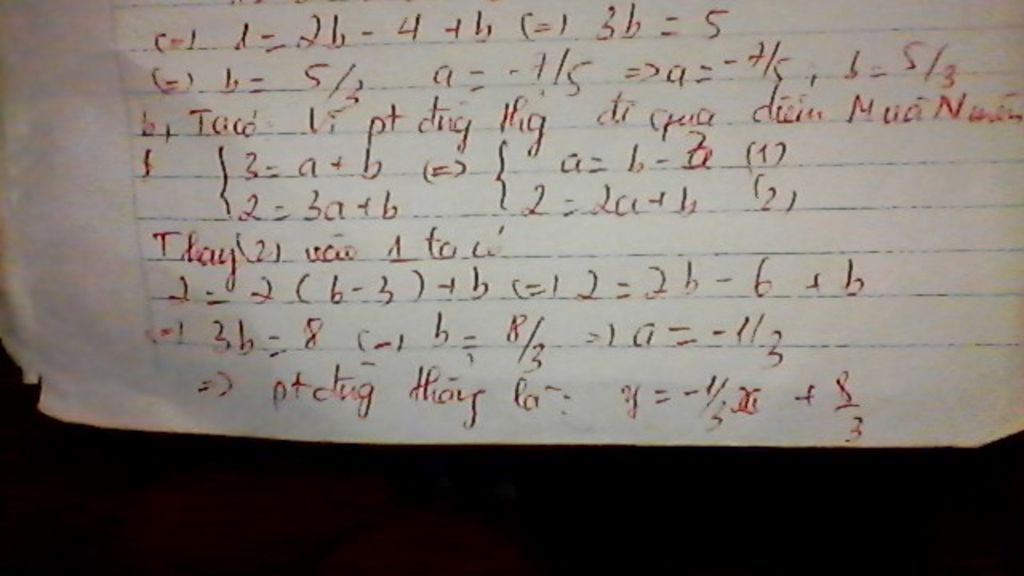 (=) 1 = 2b - 4 + b (=) 3b = 5
(=) b = 5/3 a = -7/5 => a = -7/5, b = 5/3
b, Ta có Vì pt đtg thg đi qua điểm M và N nên
{3 = a + b (=) { a = b - (1)
2 = 3a + b 2 = 2a + b (2)
Thay (2) vào 1 ta có
2 = 2 (b - 3) + b (=) 2 = 2b - 6 + b
(=) 3b = 8 (=) b = 8/3 => a = -1/3
=> pt đtg thẳng là: y = -1/3 x + 8/3